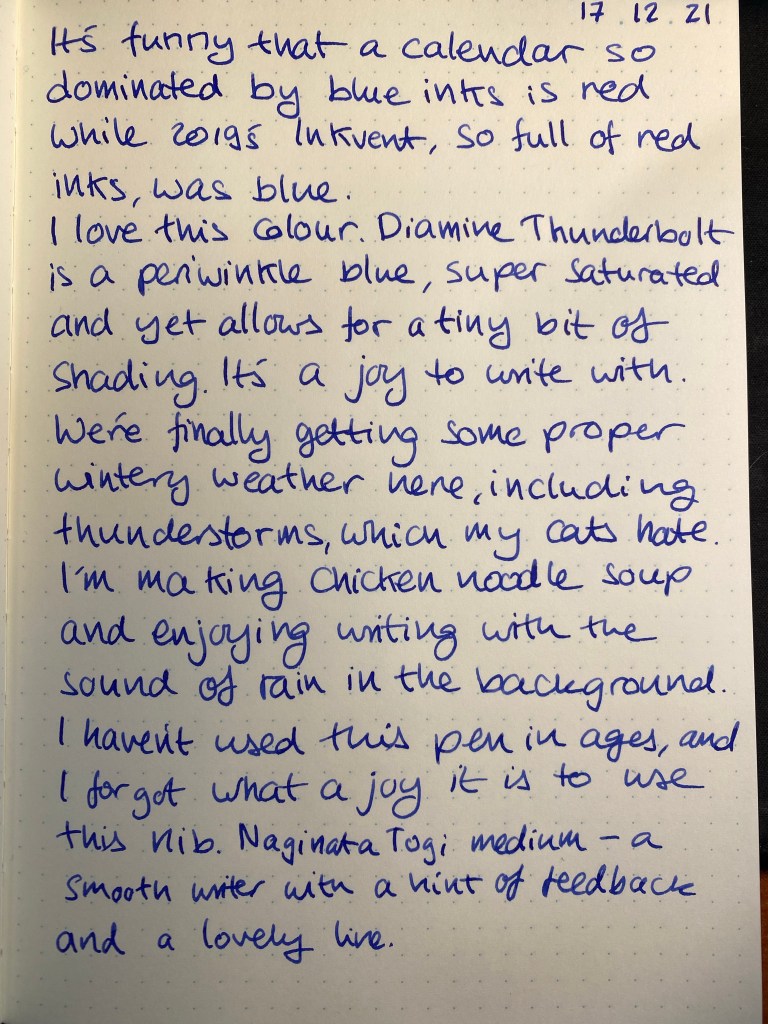 17 12 21
It's funny that a calendar so
dominated by blue inks is red
while 2019's Inkvent, so full of red
inks, was blue.
I love this colour. Diamine Thunderbolt
is a periwinkle blue, super saturated
and yet allows for a tiny bit of
shading. It's a joy to write with.
We're finally getting some proper
wintery weather here, including
thunderstorms, which my cats hate.
I'm making chicken noodle soup
and enjoying writing with the
sound of rain in the background.
I haven't used this pen in ages, and
I forgot what a joy it is to use
this nib. Naginata Togi medium – a
smooth writer with a hint of feedback
and a lovely line.